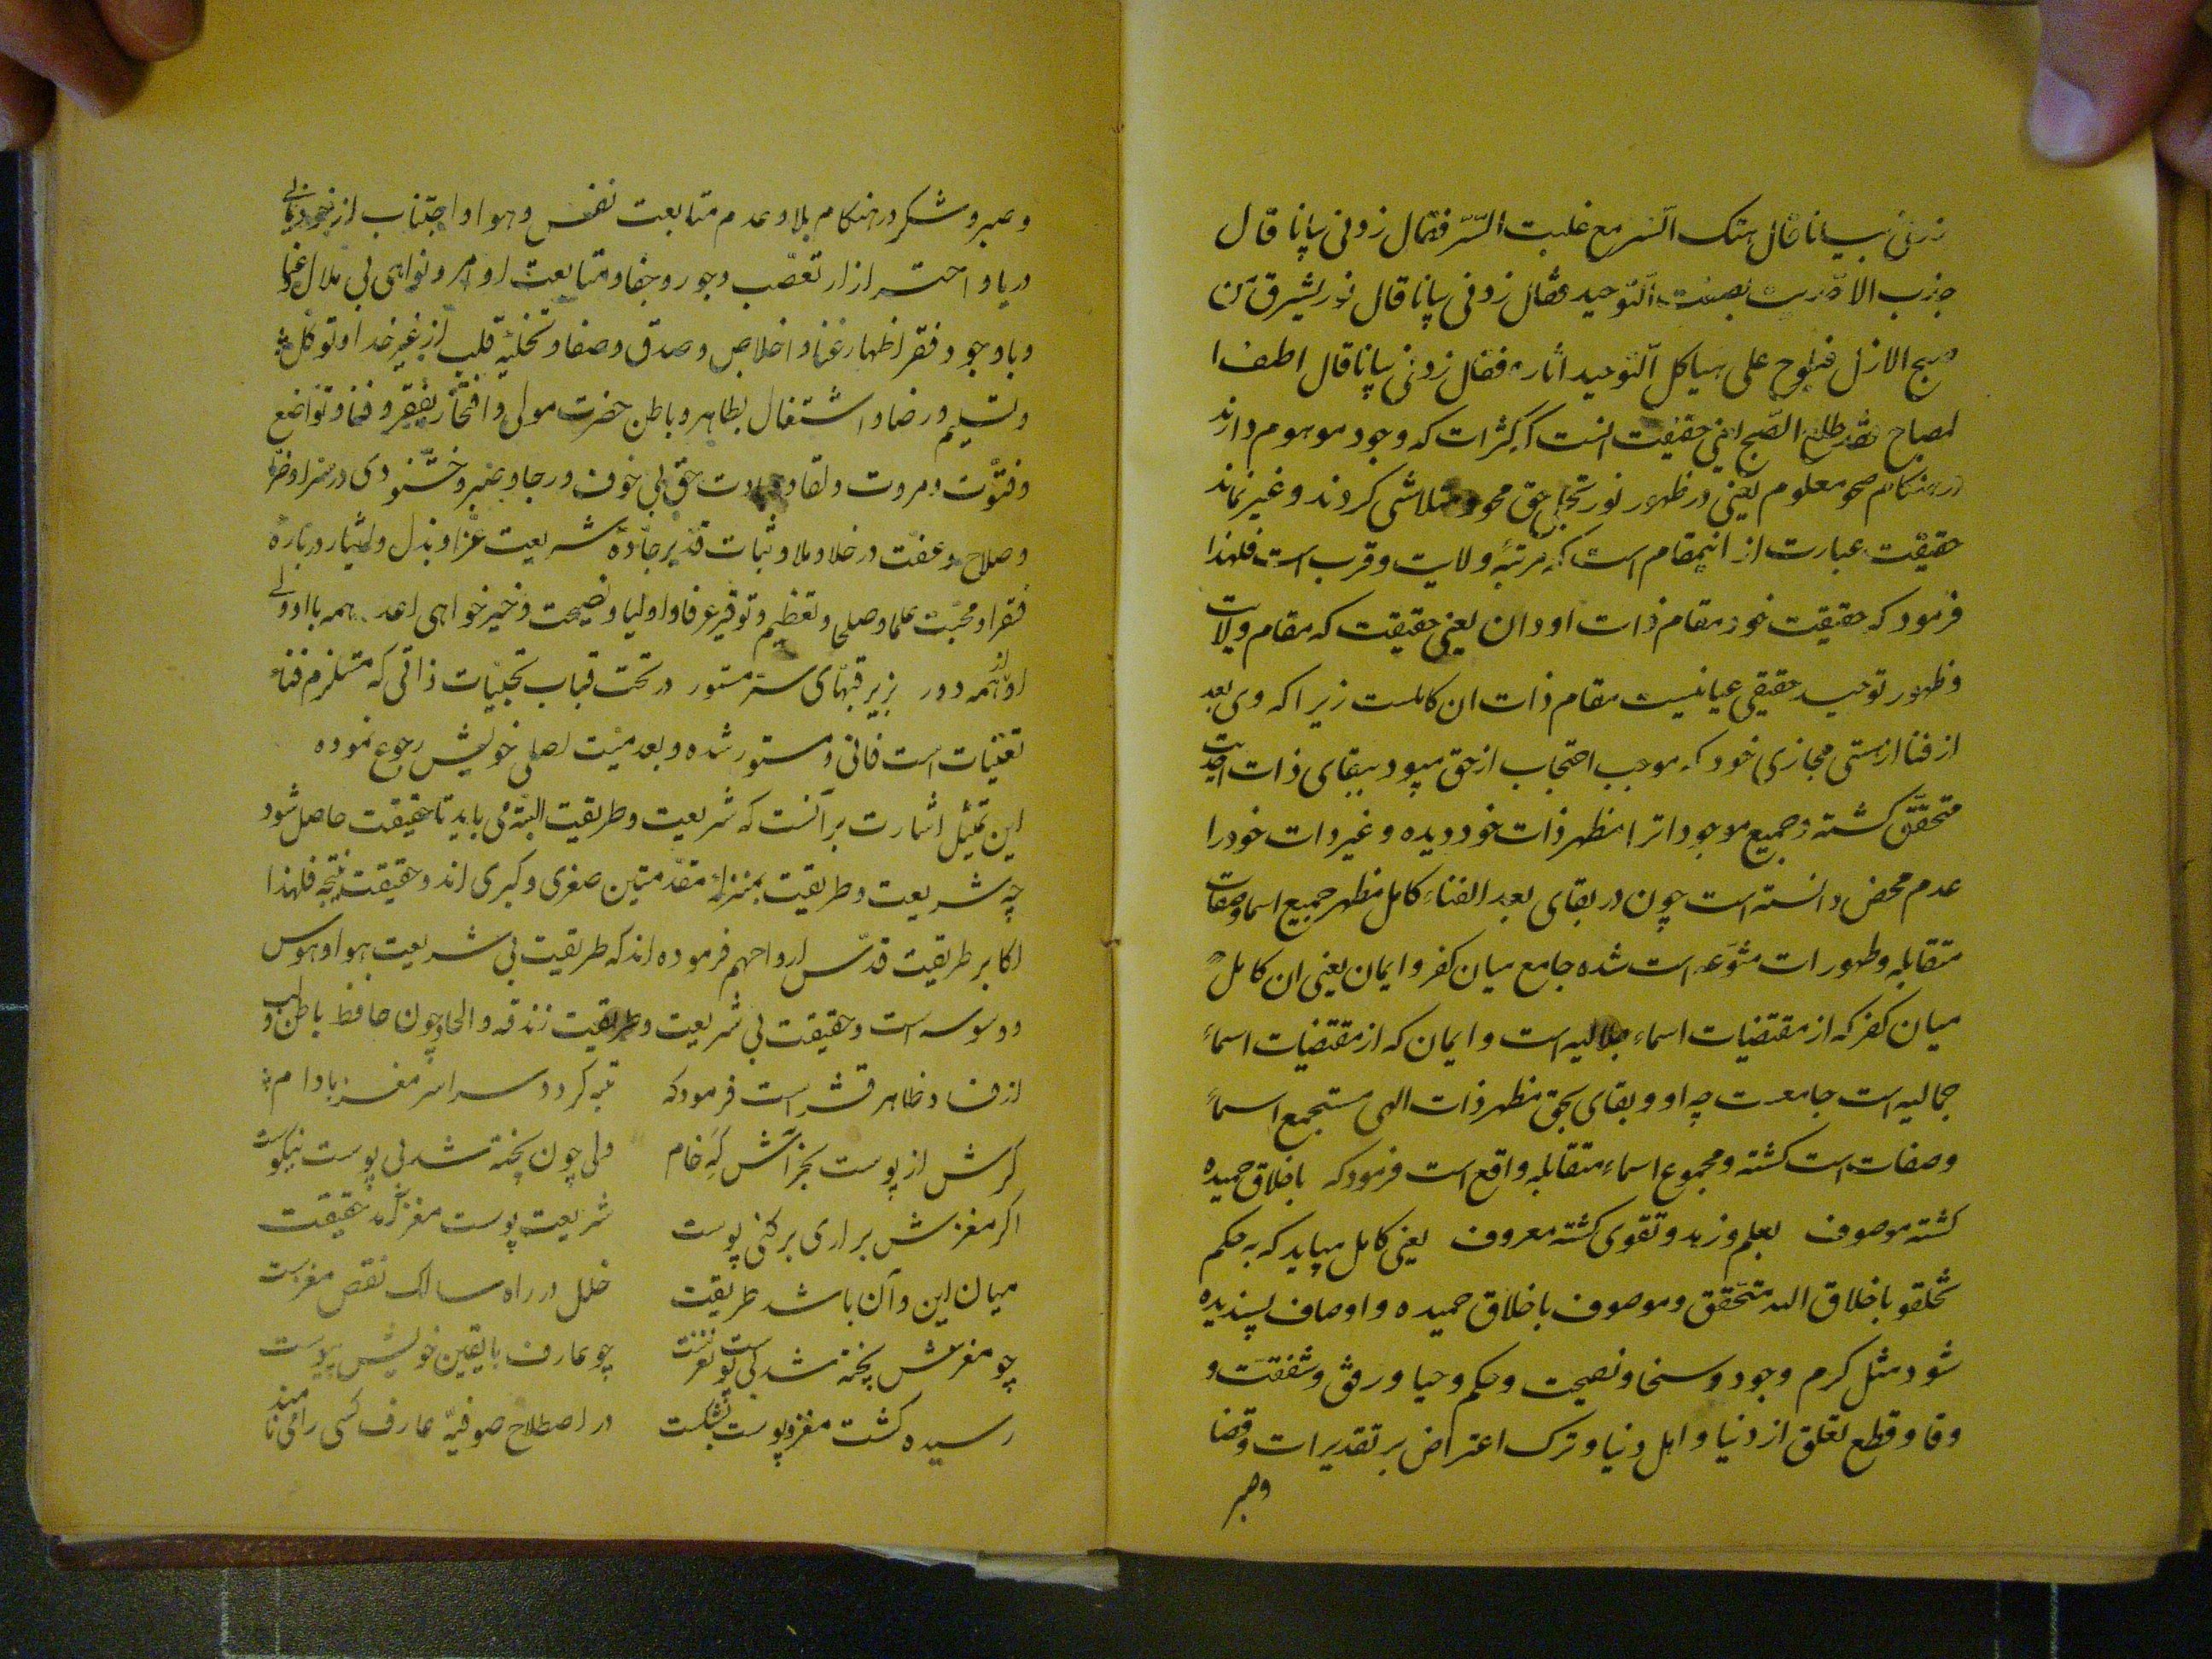 زدنی بیانا قال هتک الستر مع غلبت السّرّ فقال زدنی بیانا قال
جذب الاحدیت بصفت التوحید فقال زدنی بیانا قال نور یشرق من
صبح الازل فیلوح علی هیاکل التّوحید آثاره فقال زدنی بیانا قال اطف ا
لمصباح فقد طلع الصّبح یعنی حقیقت آنست که کثرات که وجود موهوم دارند
در هنکام صحو معلوم یعنی در ظهور نور تجلی حق محو و متلاشی کردند و غیر نماند
حقیقت عبارت از اینمقام است که مرتبهٔ ولایت و قرب است فلهذا
فرمود که حقیقت خود مقام ذات او دان یعنی حقیقت که مقام ولایت
و ظهور توحید حقیقی عیانیست مقام ذات ان کاملست زیرا که وی بعد
از فنا از هستی مجازی خود که موجب احتجاب از حق میبود ببقای ذات احدیت
متحقّق کشته و جمیع موجودات را مظهر ذات خود دیده و غیر ذات خود را
عدم محض دانسته است چون در بقای بعد الفناء کامل مظهر جمیع اسما و صفات
متقابله و ظهورات متنوّعه است شده جامع میان کفر و ایمان یعنی ان کامل
میان کفر که از مقتضیات اسماء جلالیه است و ایمان که از مقتضیات اسماء
جمالیه است جامعست چه او و بقای بحق مظهر ذات الهی مستجمع اسماء
و صفات است کشته و مجموع اسماء متقابله واقع است فرمود که باخلاق حمیده
کشته موصوف بعلم و زهد و تقوی کشته معروف یعنی کامل میباید که به حکم
تخلقو باخلاق الله متحقق و موصوف باخلاق حمیده و اوصاف پسندیده
شود مثل کرم وجود و سخا و نصیحت و حکم و حیا و رفق و شفقت و
وفا و قطع تعلق از دنیا و اهل دنیا و ترک اعتراض بر تقدیرات و قضا
وصبر
و صبر و شکر در هنکام بلا و عدم متابعت نفس و هوا و اجتناب از خودنمائی
و ریا و احتراز از تعصّب و جور و جفا و متابعت اوامر و نواهی بی ملال
و با وجود فقر اظهار غنا و اخلاص و صدق و صفا و تخلیه قلب از غیر خدا و توکّل
و تسلیم و رضا و اشتغال بظاهر و باطن حضرت مولی و افتخار بفقر و فنا و تواضع
و فتوّت و مروت و لقا و عبادت حق بی خوف و رجا و صبر و خشنودی در سرا و ضرّا
و صلاح و عفّت در خلا و ملا و ثبات قدم بر جادّهٔ شریعت غرّا و بذل و ایثار دربارهٔ
فقرا و محبّت علما و صلحا و تعظیم و توقیر عرفا و اولیا و نصیحت و خیرخواهی اعدا همه با او ولی
او از همه دور بزیر قبهای ستر مستور در تحت قباب تجلّیات ذاتی که مستلزم فناء
تعیّنات است فانی و مستور شده و بعدمیّت اصلی خویش رجوع نموده
این تمثیل اشارت بر آنست که شریعت و طریقت البتّه می باید تا حقیقت حاصل شود
چه شریعت و طریقت بمنزلهٔ مقدّمتین صغری و کبری اند و حقیقت نتیجه فلهذا
اکابر طریقت قدّس ارواحهم فرموده اند که طریقت بی شریعت هوا و هوس
و وسوسه است و حقیقت بی شریعت و طریقت زندقه و الحاد چون حافظ باطن و لب
از فساد ظاهر قشر است فرمود که تبه کردد سراسر مغز بادام
کرش از پوست بخراشی که خام ولی چون پخته شد بی پوست نیکوست
اکر مغزش براری برکنی پوست شریعت پوست مغز آمد حقیقت
میان این و آن باشد طریقت خلل در راه سالک نقص مغز است
چو مغزش پخته شد بی پوست نغزست چو عارف با یقین خویش پیوست
رسیده کشت مغز و پوست بشکست در اصطلاح صوفیّه عارف کسی را می نامند